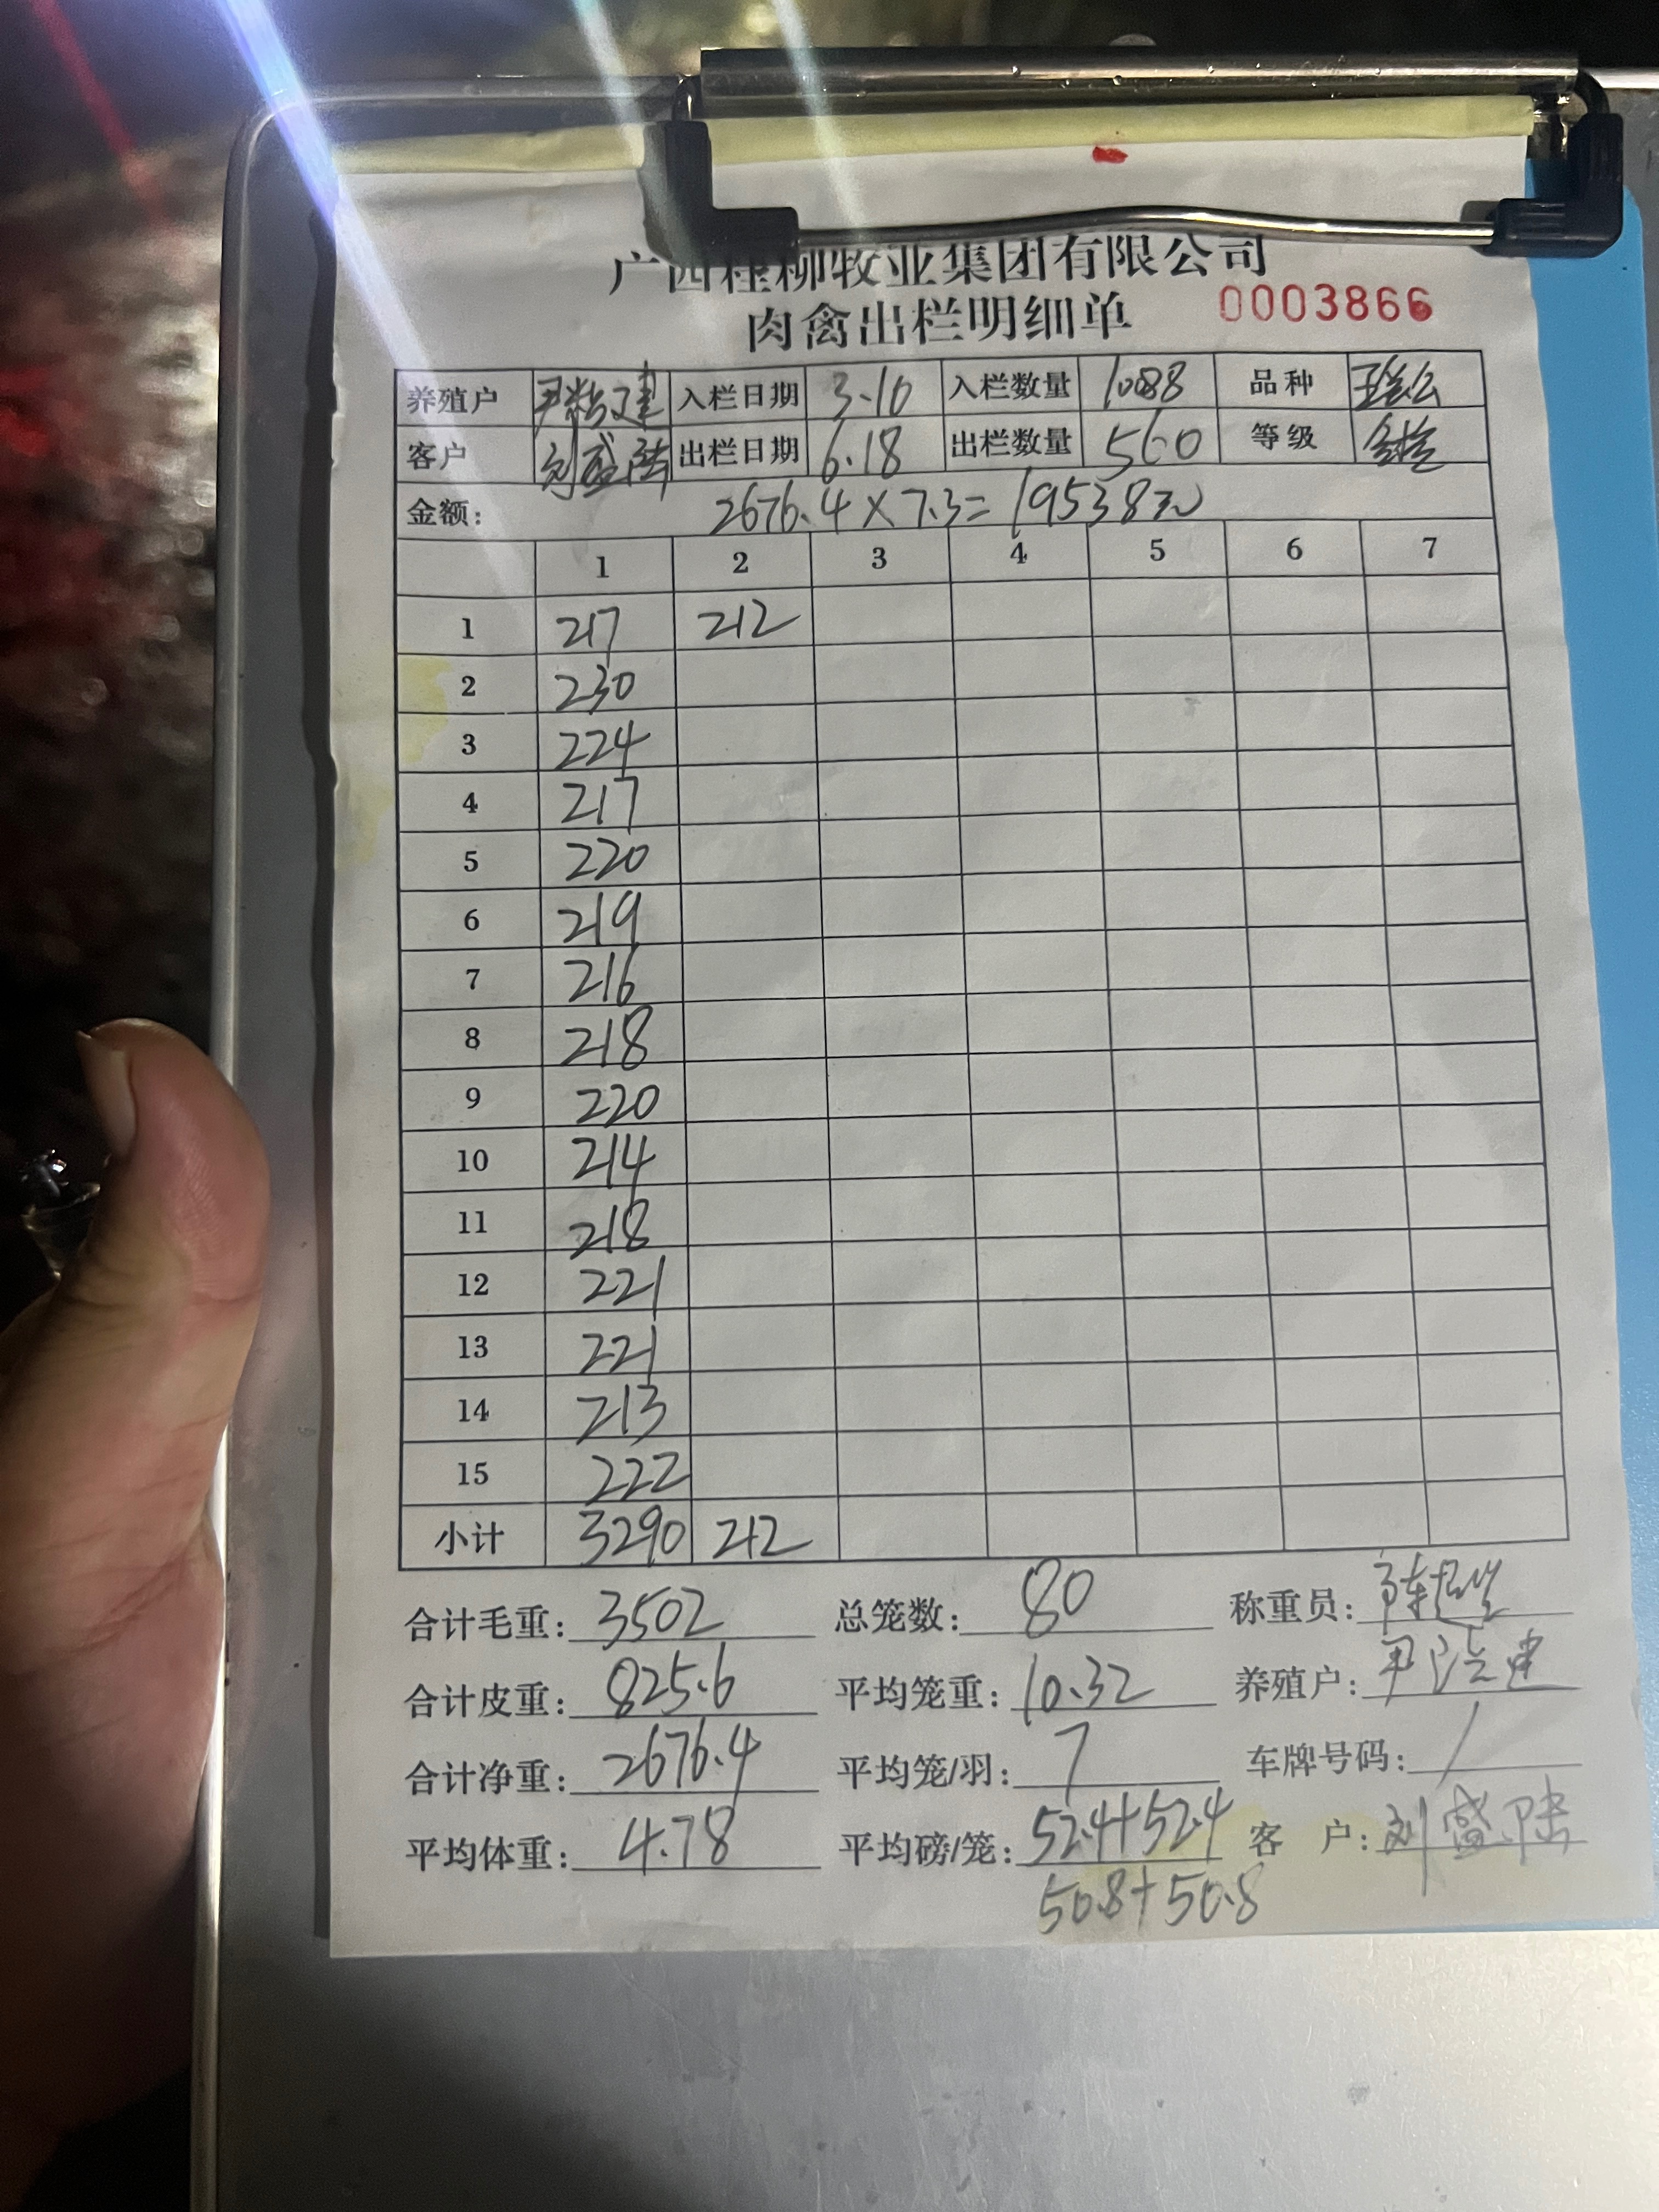 广西桂柳牧业集团有限公司
肉禽出栏明细单 0003866
养殖户 尹 建 入栏日期 3.10 入栏数量 10088 品种
客户 刘盛陆 出栏日期 6.18 出栏数量 560 等级
金额: 2676.4×7.3=19538元
1 2 3 4 5 6 7
1 217 212
2 230
3 224
4 217
5 220
6 219
7 216
8 218
9 220
10 214
11 218
12 221
13 221
14 213
15 222
小计 3290 212
合计毛重: 3502 总笼数: 80 称重员: 陈
合计皮重: 825.6 平均笼重: 10.32 养殖户: 尹 建
合计净重: 2676.4 平均笼/羽: 7 车牌号码: /
平均体重: 4.78 平均磅/笼: 52.4+52.4 客 户: 刘盛陆
50.8+50.8